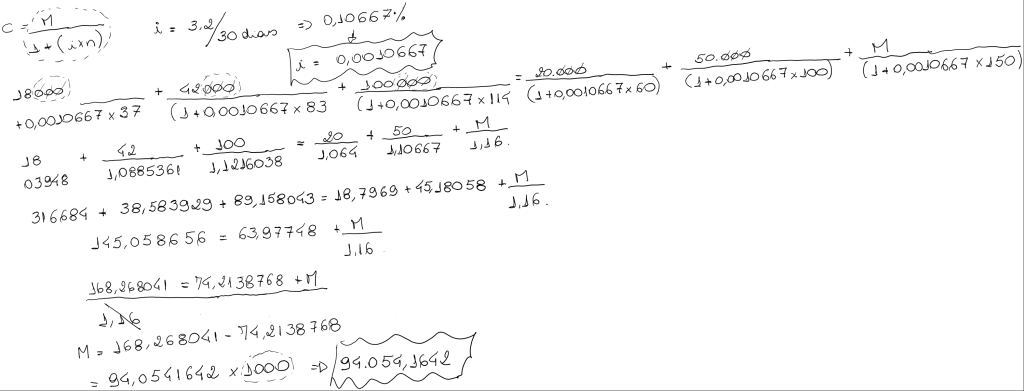 C = M / 1 + (i×n)   i = 3,2/30 dias => 0,10667%
i = 0,0010667
18000 / +0,0010667×37 + 42000 / (1+0,0010667×83 + 100000 / (1+0,0010667×114 = 20.000 / (1+0,0010667×60) + 50.000 / (1+0,0010667×100) + M / (1+0,0010667×150)
18 / 03948 + 42 / 1,0885361 + 100 / 1,1216038 = 20 / 1,064 + 50 / 1,10667 + M / 1,16.
316684 + 38,583929 + 89,158043 = 18,7969 + 45,18058 + M / 1,16.
145,058656 = 63,97748 + M / 1,16
168,268041 = 74,2138768 + M / 1,16
M = 168,268041 - 74,2138768
= 94,0541642 × 1000 => 94.054,1642